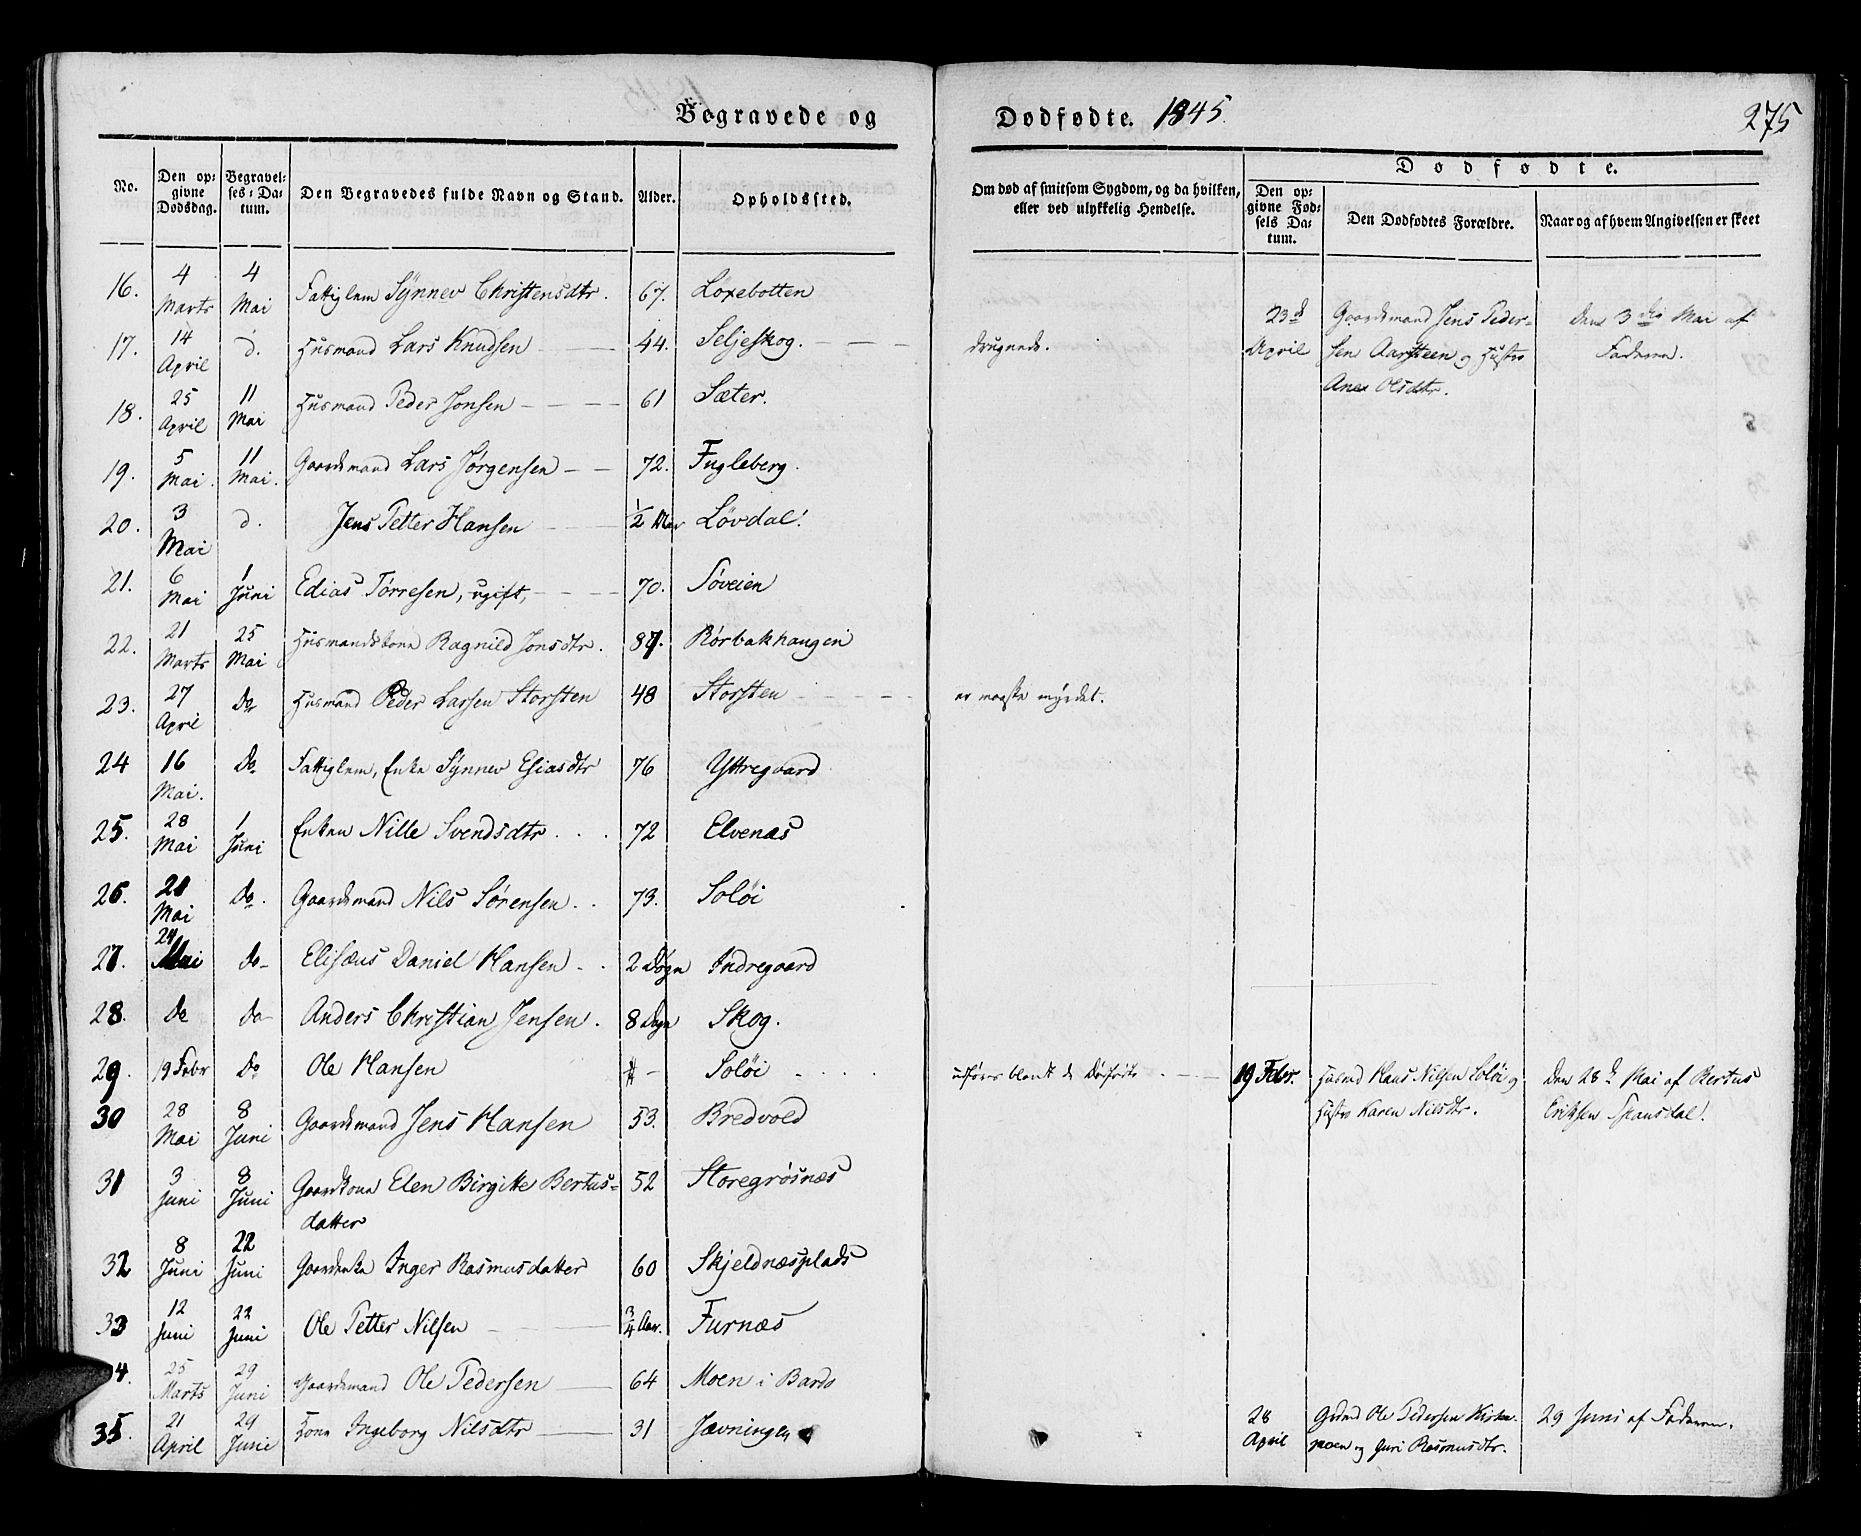 Begravede og
Dødfødte. 1845.
275
No.
Den opgivne Dødsdag.
Begravelses-Datum.
Den Begravedes fulde Navn og Stand.
Alder.
Opholdssted.
Om død af smitsom Sygdom, og da hvilken, eller ved ulykkelig Hendelse.
Dødfødte.
Den opgivne Fødsels Datum.
Den Dødfødtes Forældre.
Naar og af hvem Angivelsen er skeet
16. 4 Marts 4 Mai Fattiglem Synnev Christensdtr. 67. Loxebotten
17. 14 April d. Husmand Lars Knudsen 44. Seljeskog. druknede.
23d April Gaardmand Jens Pedersen Aarsteen og Hustro Ane Olsdtr. Den 3die Mai af Faderen.
18. 25 April 11 Mai Husmand Peder Jonsen 61 Sæter.
19. 5 Mai. 11 Mai. Gaardmand Lars Jørgensen 72. Fugleberg.
20. 3 Mai d. Jens Petter Hansen 1/2 Aar Løvdal.
21. 6 Mai 1 Juni Edias Tørresen, ugift, 70. Søveien
22. 21 Marts 25 Mai Husmandskone Ragnild Jonsdtr. 87. Rørbakhaugen
23. 27 April Do Husmand Peder Larsen Storsten 48 Storsten er maaske myrdet.
24 16 Mai. Do Fattiglem, Enke Synnev Esiasdtr 76 Yttregaard
25. 28 Mai 1 Juni Enken Nille Svendsdtr 72 Elvenæs
26. 21 Mai Do. Gaardmand Nils Sørensen 73. Soløi
27. 24 Mai Do Elisæus Daniel Hansen 2 Døgn Indregaard
28. Do Do Anders Christian Jensen. 8 Døgn Skog.
29. 19 Febr Do Ole Hansen Soløi udføres blandt de Dødfødte 19 Febr. Husmd Hans Nilsen Soløi og Hustro Karen Nilsdtr. Den 28de Mai af Bertus Eriksen Spansdal.
30 28 Mai 8 Juni Gaardmand Jens Hansen 53. Bredvold
31 3 Juni 8 Juni Gaardkone Elen Birgitte Bertus-
datter 52 Storegrøsnæs
32 8 Juni 22 Juni Gaardenke Inger Rasmusdatter 60 Skjeldnæsplads
33 12 Juni 22 Juni Ole Petter Nilsen 3/4 Aar. Furnæs
34. 25 Marts 29 Juni Gaardmand Ole Pedersen 64 Moen i Bardo
35. 21 April 29 Juni Kone Ingeborg Nilsdtr 31 Jævningen
28 April Grdmd Ole Pedersen Kirkemoen og Guri Rasmusdtr. 29 Juni af Faderen.